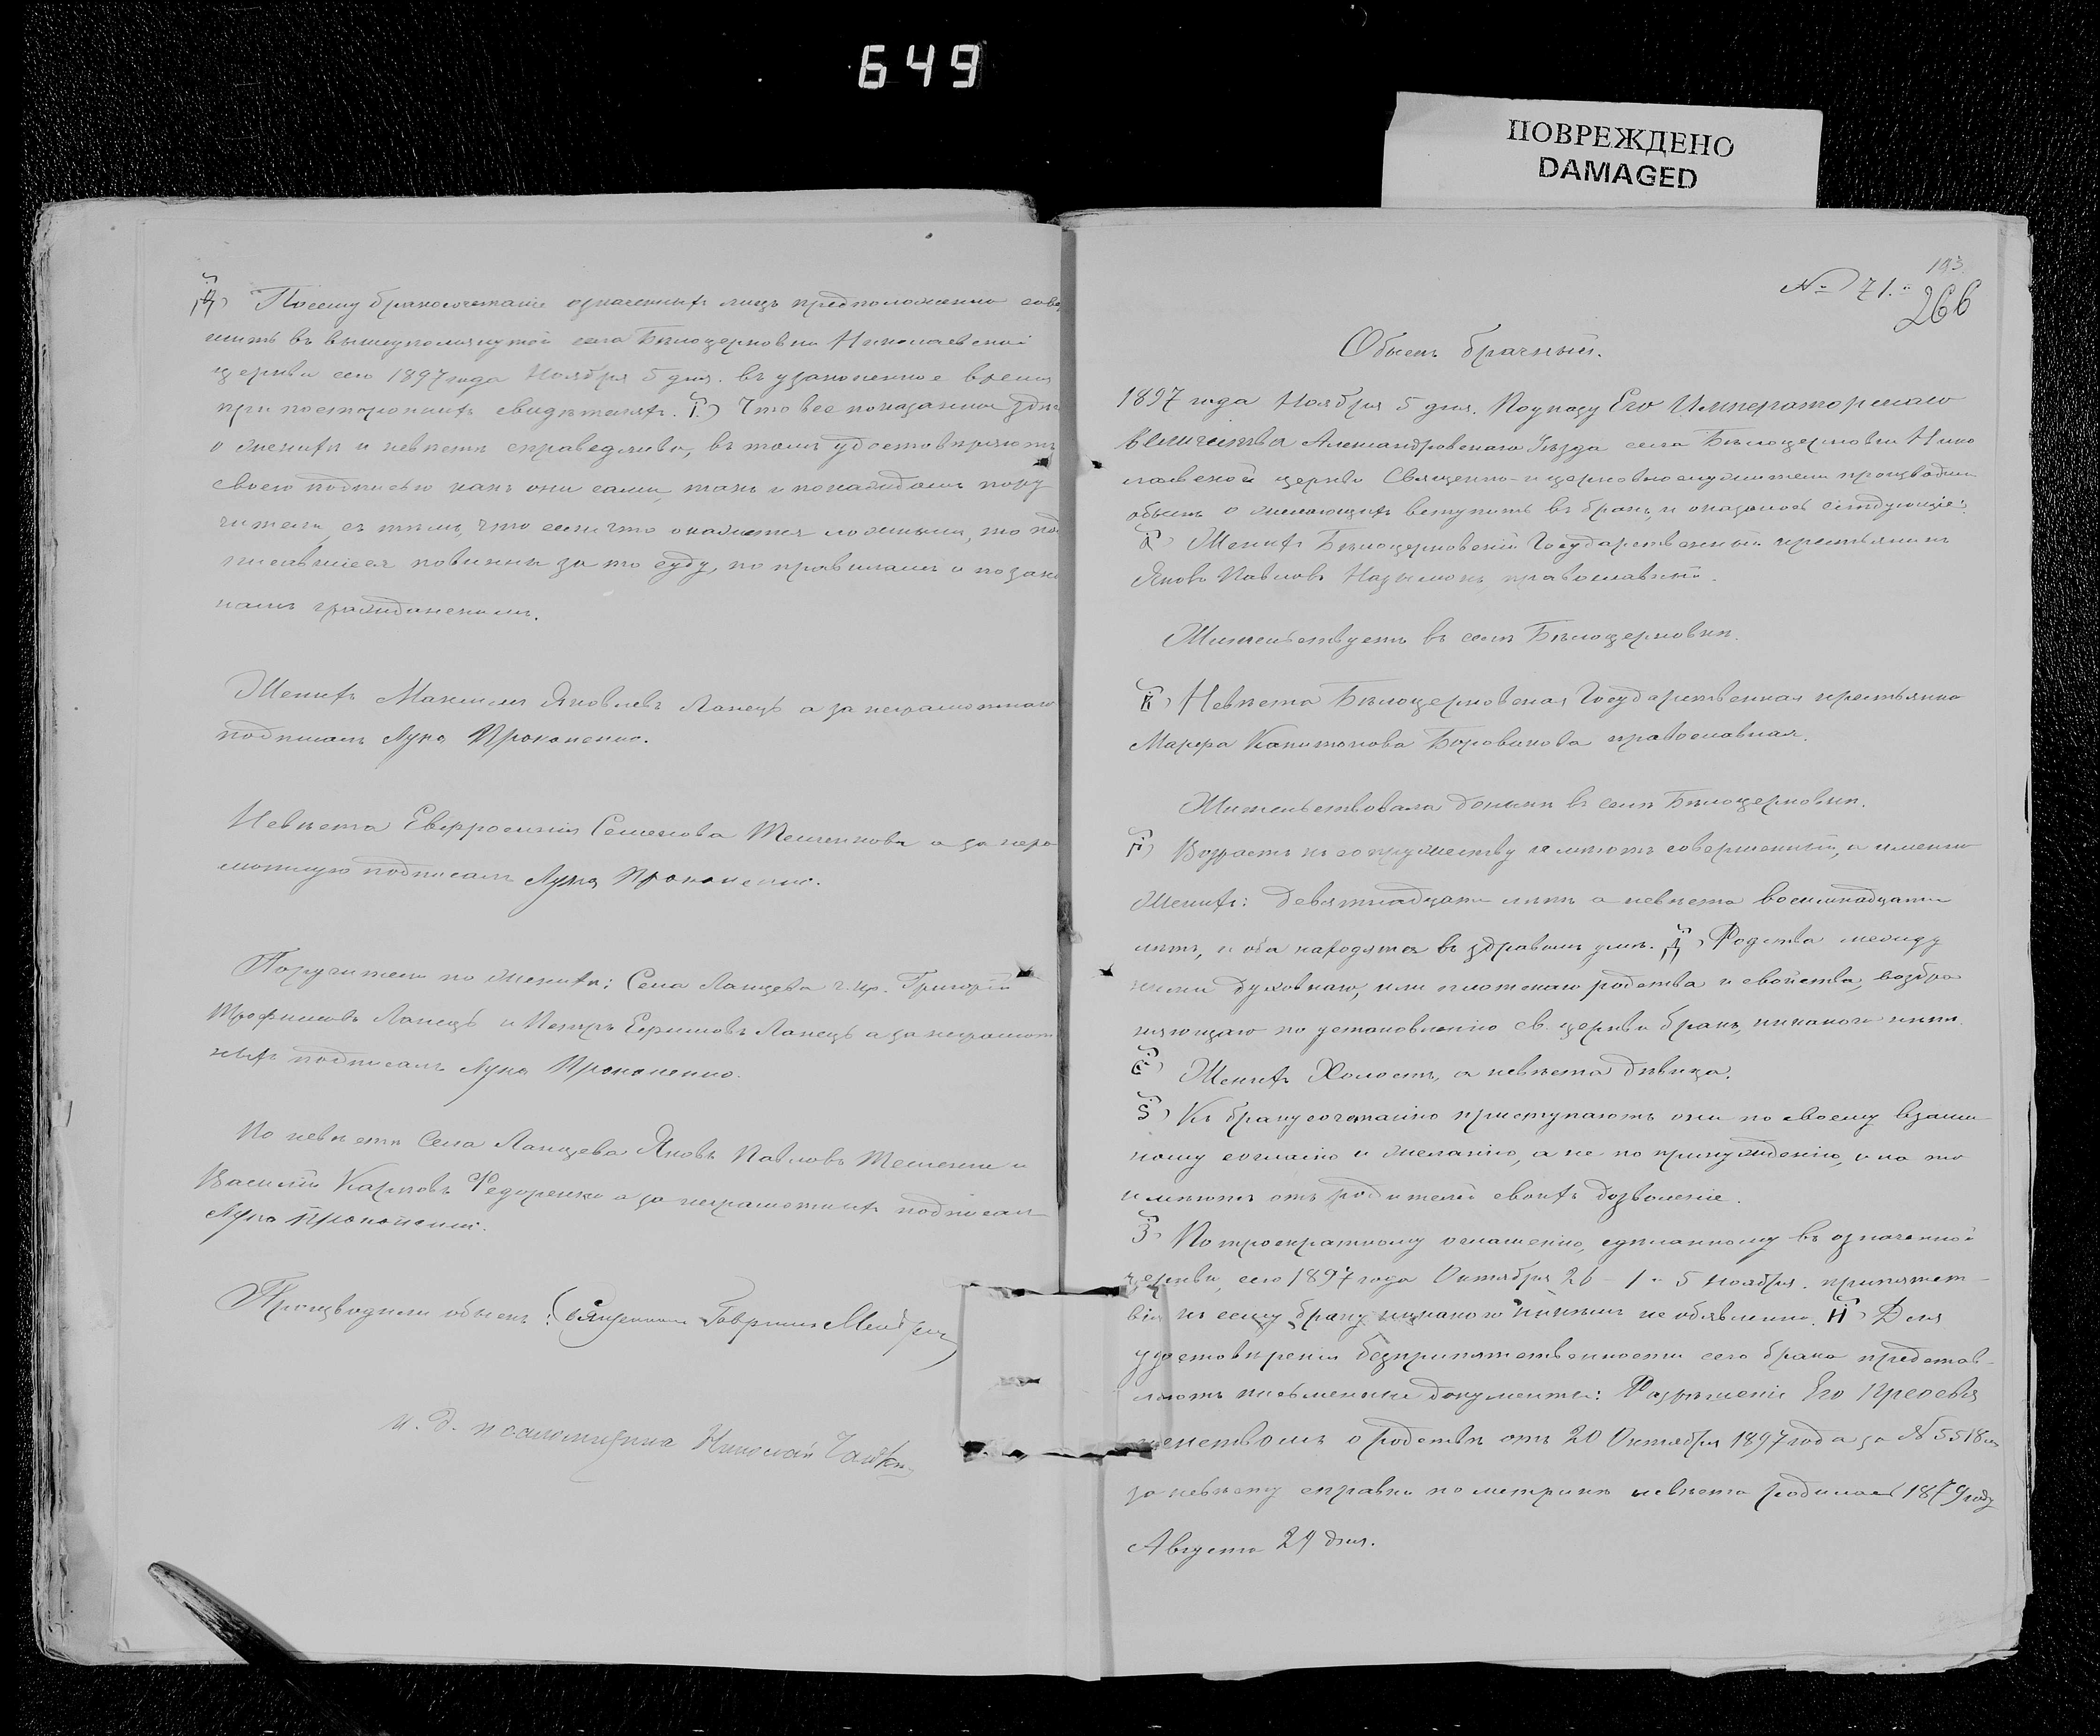 649
ПОВРЕЖДЕНО
DAMAGED
Ѳ) Посему бракосочетаніе означенныхъ лицъ предположено совер
шить въ вышеупомянутой села Бѣлоцерковки Николаевской
церкви сего 1897 года Ноября 5 дня. въ узаконенное время
при постороннихъ свидѣтеляхъ. І) Что все показанное здѣсь
о женихѣ и невѣстѣ справедливо, въ томъ удостовѣряютъ
своею подписью какъ они сами, такъ и по каждомъ пору
чители, съ тѣмъ, что если что окажется ложнымъ, то под
писавшіеся повинны за то суду, по правиламъ и по зако
намъ гражданскимъ.
Женихъ Максимъ Яковлевъ Ланецъ а за неграмотнаго
подписалъ Лука Прокопенко.
Невѣста Евфросинія Семенова а за негра
мотную подписалъ Лука Прокопенко.
Поручители по женихѣ: Села Ланцева г. кр. Григорій
Трофимовъ Ланецъ и Петръ Ефимовъ Ланецъ а за неграмот
ныхъ подписалъ Лука Прокопенко.
По невѣстѣ Села Ланцева Яковъ Павловъ и
Василій Карповъ Федоренко а за неграмотныхъ подписалъ
Лука Прокопенко.
Производили обыскъ: Священникъ Гавріилъ
и. д. псаломщика Николай
193
№ 71.
266
Обыскъ брачный.
1897 года Ноября 5 дня. По указу Его Императорскаго
Величества Александровскаго Уѣзда села Бѣлоцерковки Нико
лаевской церкви Священно-и церковнослужители производили
обыскъ о желающихъ вступить въ бракъ, и оказалось слѣдующіе:
А) Женихъ Бѣлоцерковскій Государственный крестьянинъ
Яковъ Павловъ православный.
Жительствуетъ въ селѣ Бѣлоцерковкѣ.
В) Невѣста Бѣлоцерковская Государственная крестьянка
Марфа Капитонова Боровикова православная.
Жительствовала донынѣ въ селѣ Бѣлоцерковкѣ.
Г) Возрастъ къ сопружеству имѣютъ совершенный, а именно
Женихъ: девятнадцати лѣтъ а невѣста восемнадцати
лѣтъ, и оба находятся въ здравомъ умѣ. Д) Родства между
ними духовнаго, или плотскаго родства и свойства, возбра
няющаго по установленію св. церкви бракъ, никакого нѣтъ.
Е) Женихъ Холостъ, а невѣста дѣвица.
Ѕ) Къ бракосочетанію приступаютъ они по своему взаим
ному согласію и желанію, а не по принужденію, и на то
имѣютъ отъ родителей своихъ дозволеніе.
З) По троекратному оглашенію, сдѣланному въ означенной
церкви, сего 1897 года Октября 26 - 1 - 5 Ноября. препятст-
вія къ сему браку никакого никѣмъ не объявлено. И) Для
удостовѣренія безпрепятственности сего брака представ-
ляютъ письменные документы: Разрѣшеніе Его Преосвя
щенствомъ о родствѣ отъ 20 Октября 1897 года за № 5518
за невѣсту справка по метрикѣ невѣста родилась 1879 году
Августа 29 дня.